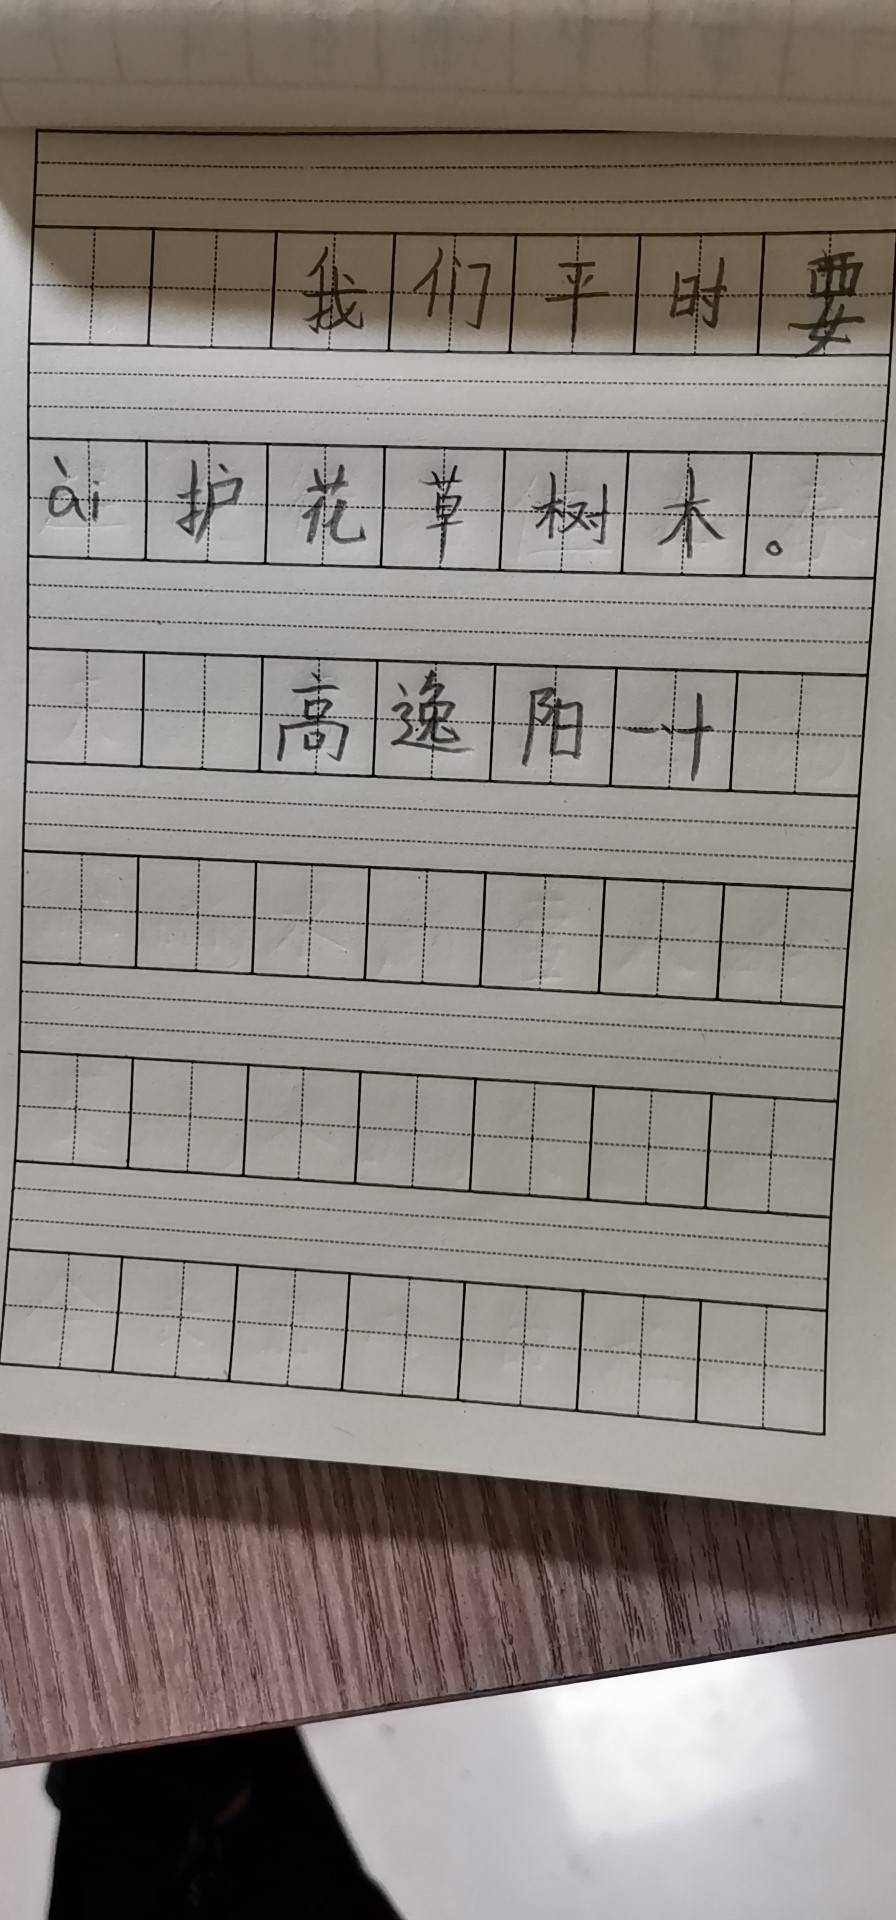 我们平时要
ài护花草树木。
高逸阳一十